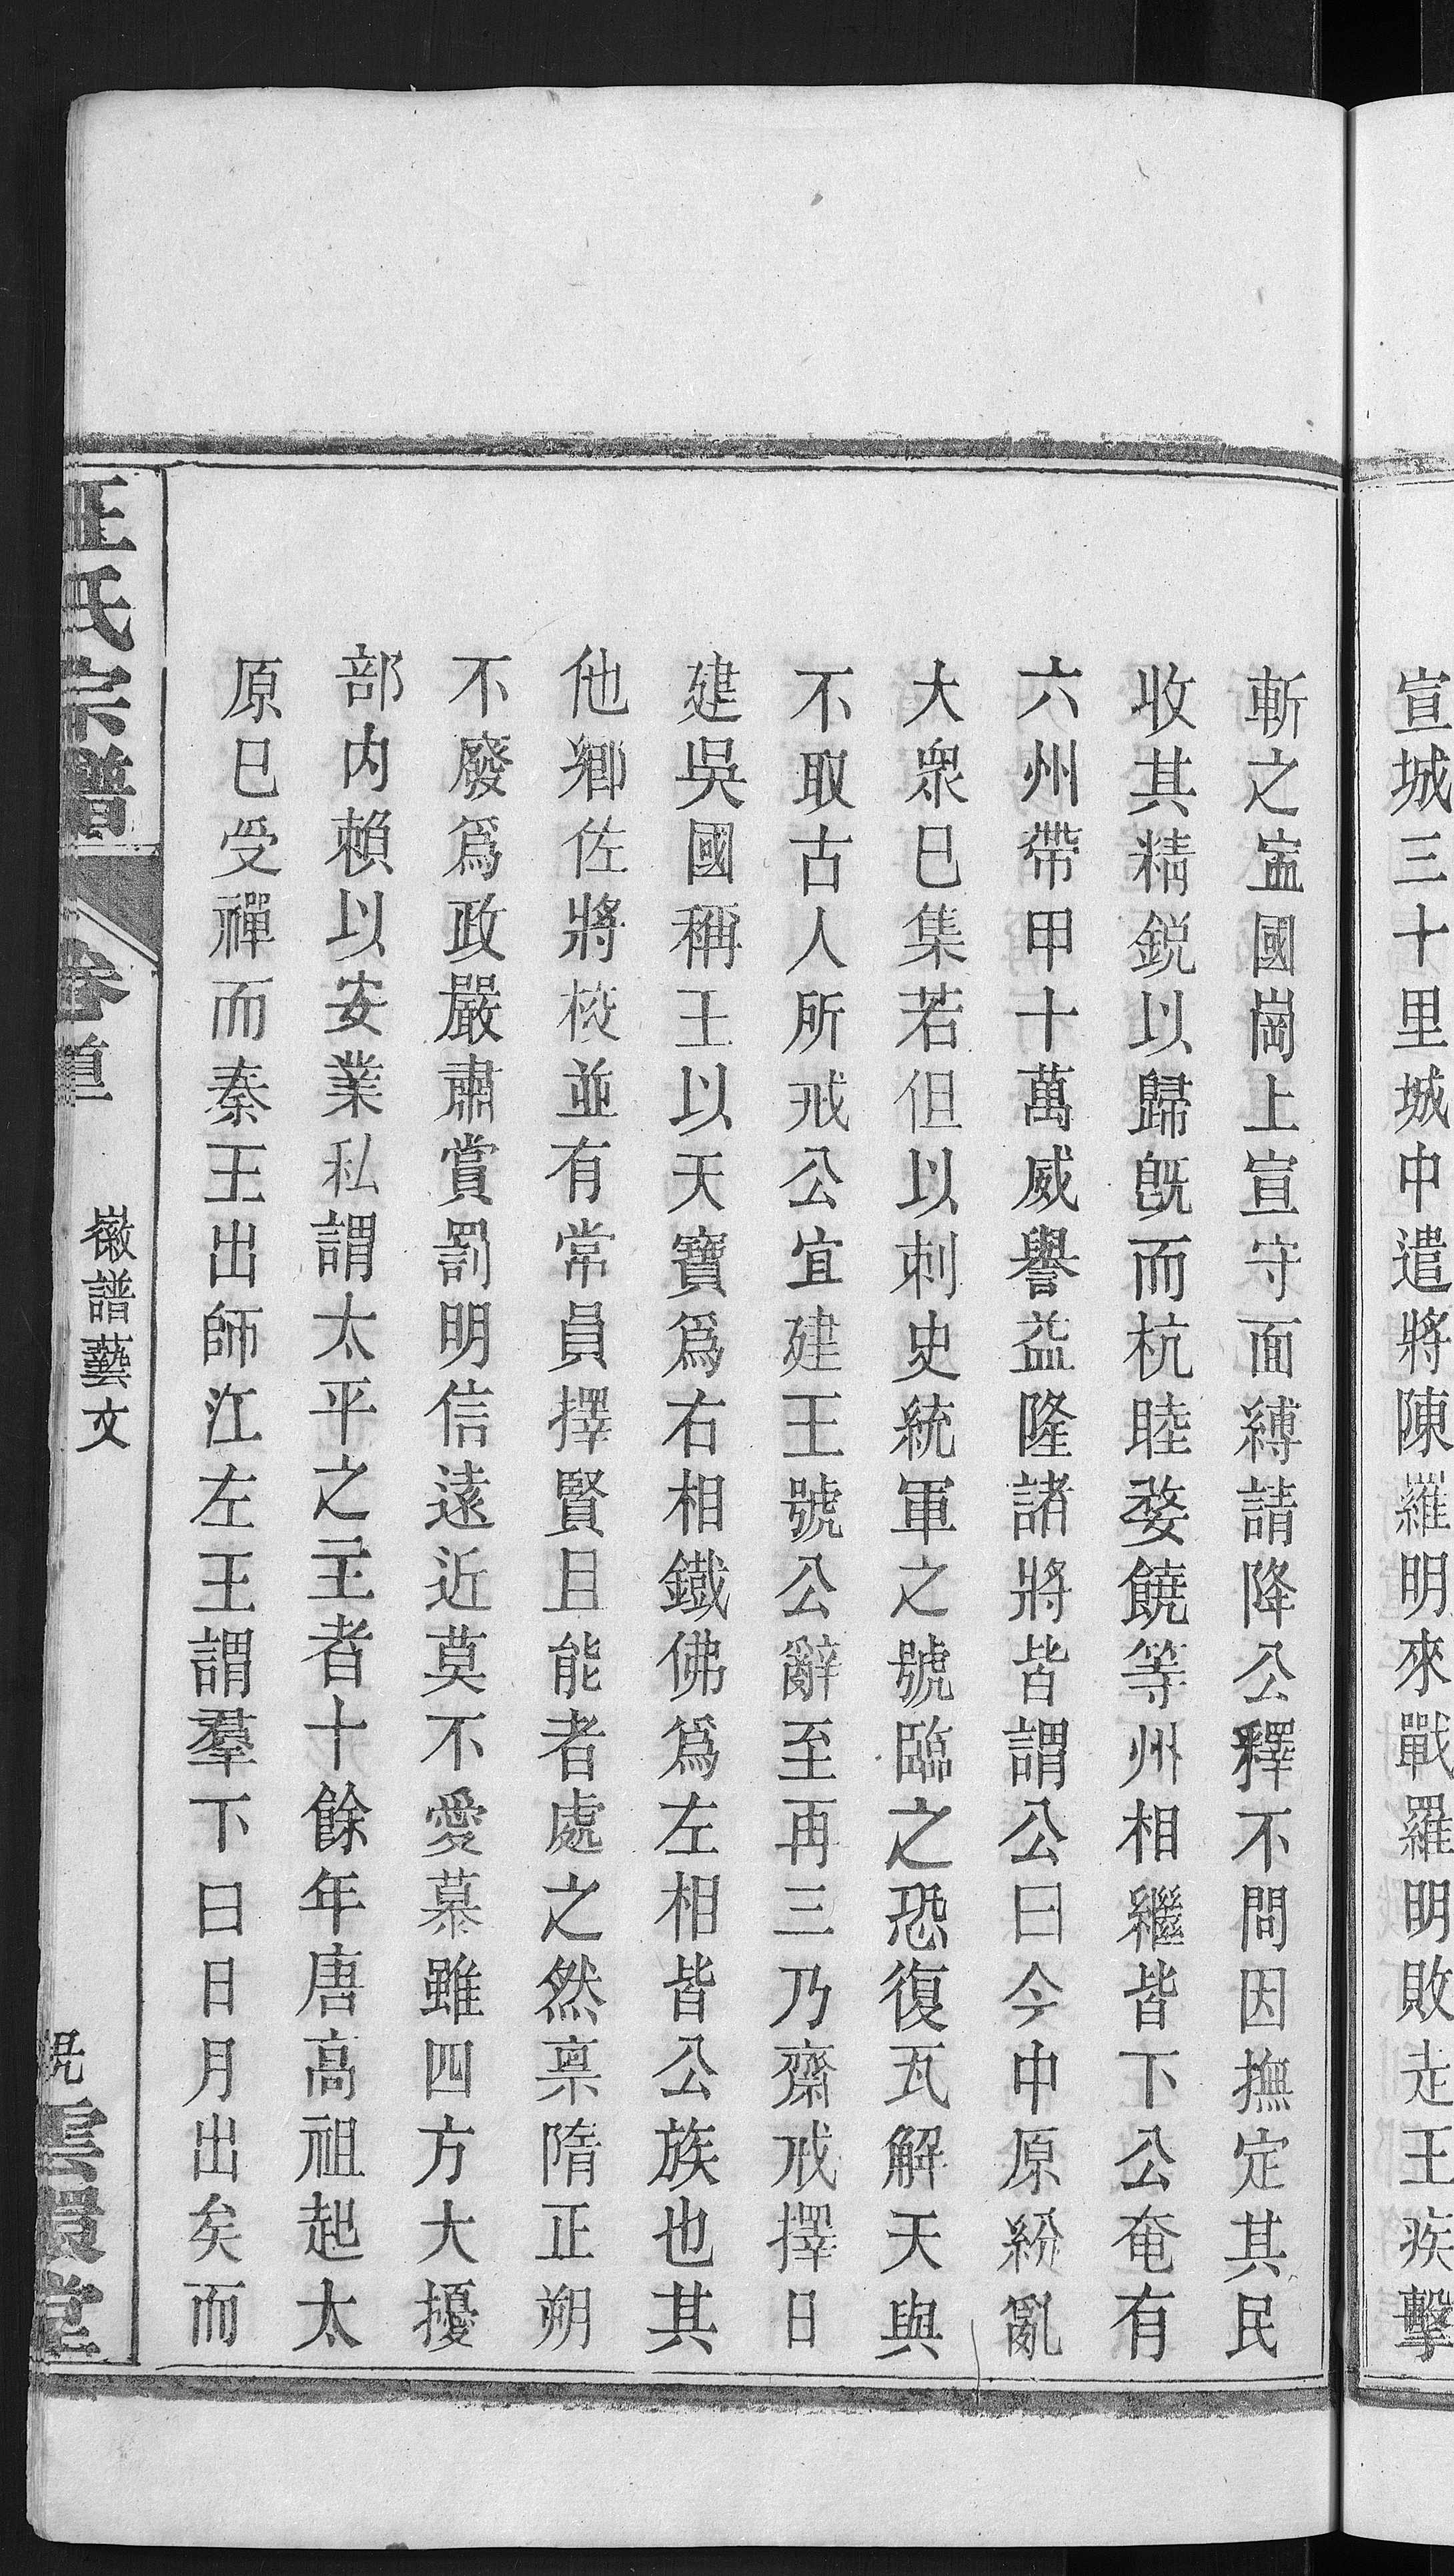 宣城三十里城中遣將陳羅明來戰羅明敗走王疾擊
斬之盁國崗上宣守面縛請降公釋不問因撫定其民
收其精銳以歸旣而杭睦婺饒等州相繼皆下公奄有
六州帶甲十萬威譽益隆諸將皆謂公曰今中原紛亂
大衆巳集若但以刺史統軍之號臨之恐復瓦解天與
不取古人所戒公宜建王號公辭至再三乃齋戒擇日
建吳國稱王以天寶爲右相鐵佛爲左相皆公族也其
他鄉佐將校並有常員擇賢且能者處之然稟隋正朔
不廢爲政嚴肅賞罰明信遠近莫不愛慕雖四方大擾
部内賴以安業私謂太平之主者十餘年唐高祖起太
原巳受禪而秦王出師江左王謂羣下曰日月出矣而
氏宗譜
卷首
徽譜藝文
雲環堂